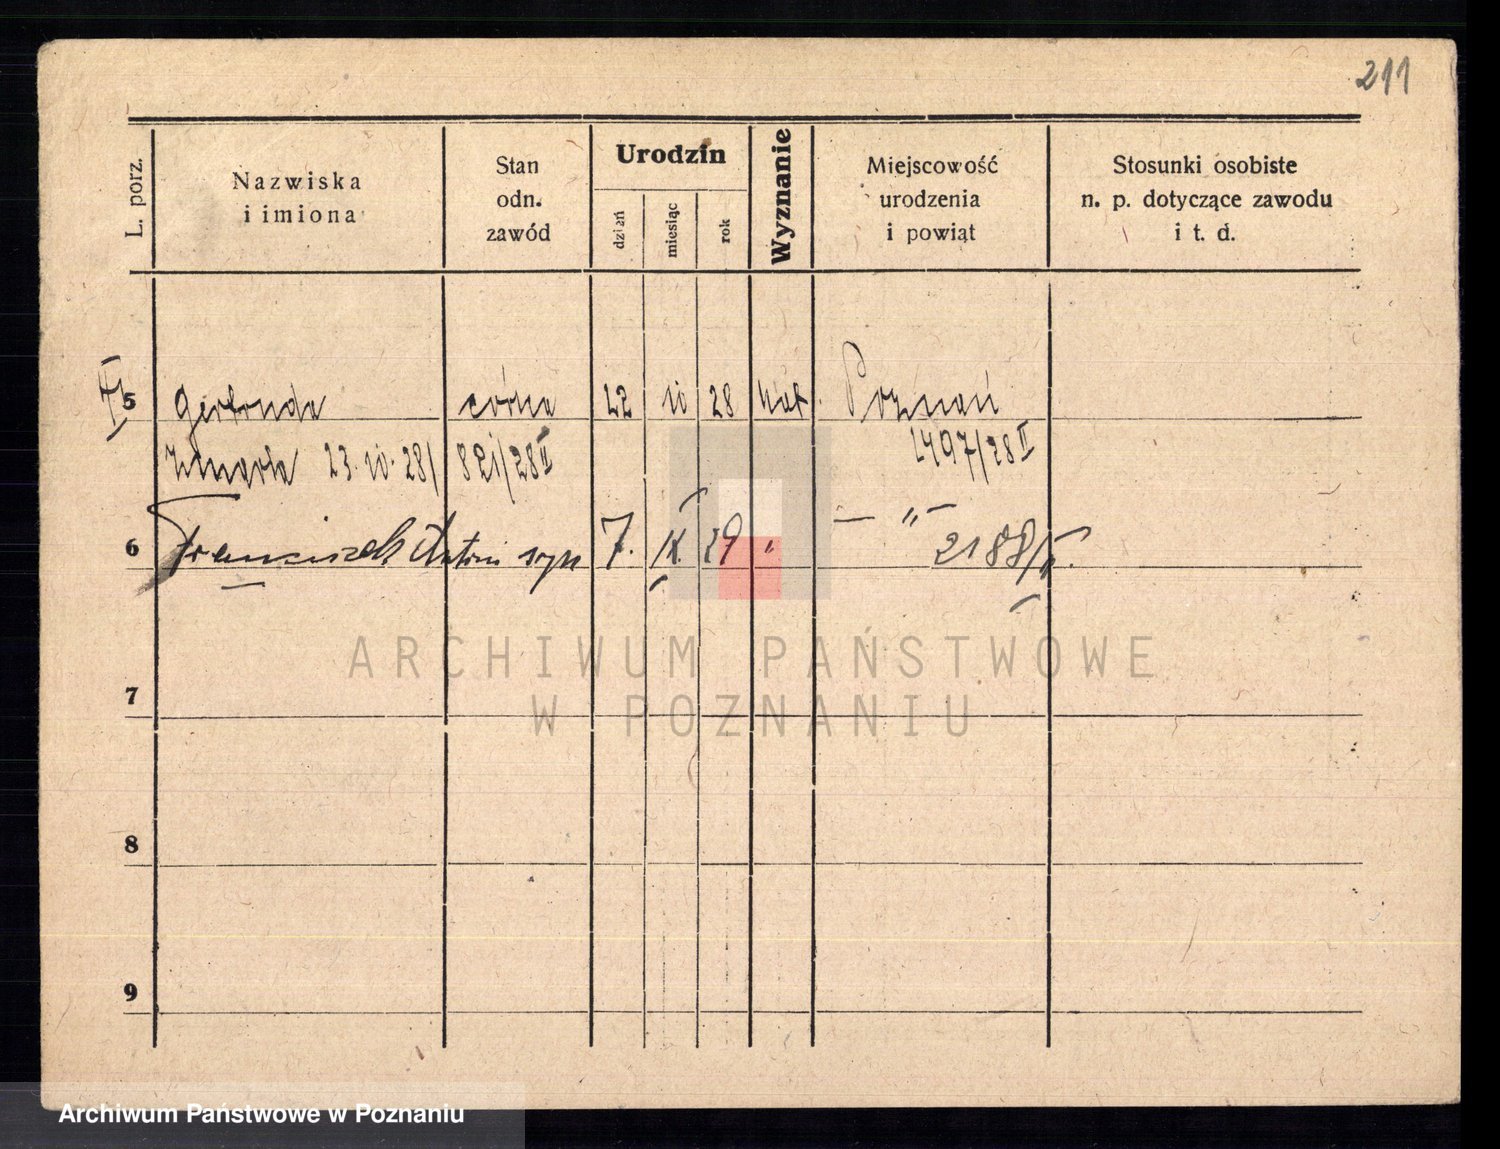 211
L. porz.
Nazwiska
i imiona
Stan
odn.
zawód
Urodzin
dzień
miesiąc
rok
Wyznanie
Miejscowość
urodzenia
i powiat
Stosunki osobiste
n. p. dotyczące zawodu
i t. d.
5 Gertruda córka 22 10 28 kat. Poznań
zmarła 23.10.28/ 821/28 II 2497/28 II
6 Franciszek Antoni syn 7. IX. 29 " — " —
2188/II.
ARCHIWUM PAŃSTWOWE
W POZNANIU
7
8
9
Archiwum Państwowe w Poznaniu